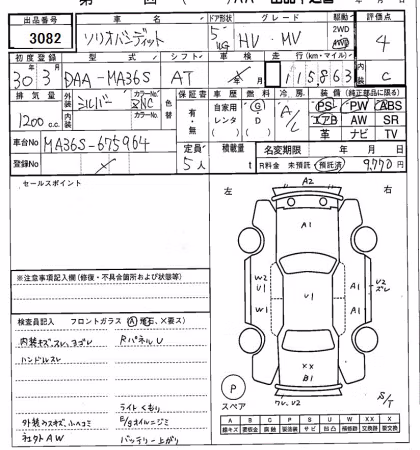 出品番号 車名 ドア形状 グレード 駆動 評価点
3082 ソリオバンディット 5 HV・MV 2WD 4
初度登録 型式 シフト 車検 走行(km・マイル) 内装
30年3月 DAA-MA36S AT 115,863 C
排気量 外装 シルバー カラーNo. ZNC 色替 保証書 車歴 燃料 冷房 装備(純正部品に限る)
1200c.c. 内装 カラーNo. 有・無 自家用 レンタ ( ) G D ( ) A/C PS PW ABS
エアB AW SR
革 ナビ TV
車台No MA36S-675964
定員 積載量 名変期限 年 月 日
登録No 5人 t R料金 未預託 預託済 9,770円
セールスポイント
左 右
A2
A1
W2 U1 U1 V2 ズレ
W1 A1
XX
B1
P
スペア
ワレ、V2
S/T
※注意事項記入欄(修復・不具合箇所および状態等)
検査員記入 フロントガラス(A、飛石、X要ス)
内装キズ、スレ、ヨゴレ RパネルU
ハンドルスレ
ライトくもり
外装小キズ、小ヘコミ E/gオイルニジミ
社外AW バッテリー上がり
A B C P S U W X XX X
線キズ 要板金 腐蝕 要塗装 サビ 凹凸 補修跡 交換跡 要交換